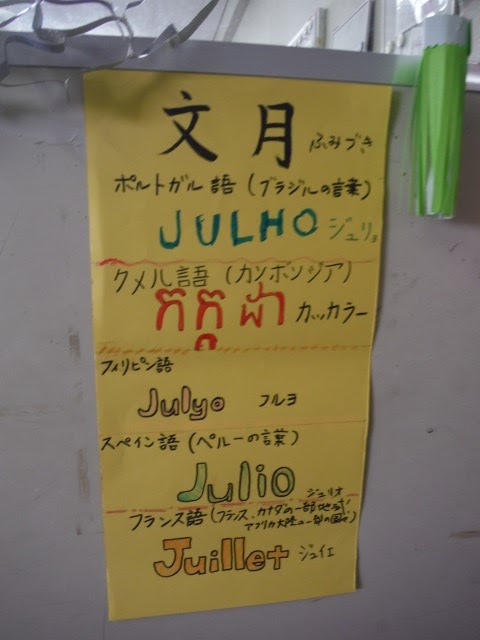 文月 ふみづき
ポルトガル語(ブラジルの言葉)
JULHO ジュリョ
クメル語(カンボンジア)
កក្កដា カッカラー
フィリピン語
Julyo フルヨ
スペイン語(ペルーの言葉)
Julio ジュリオ
フランス語(フランス、カナダの一部地域
アフリカ大陸の一部の国々)
Juillet ジュイエ